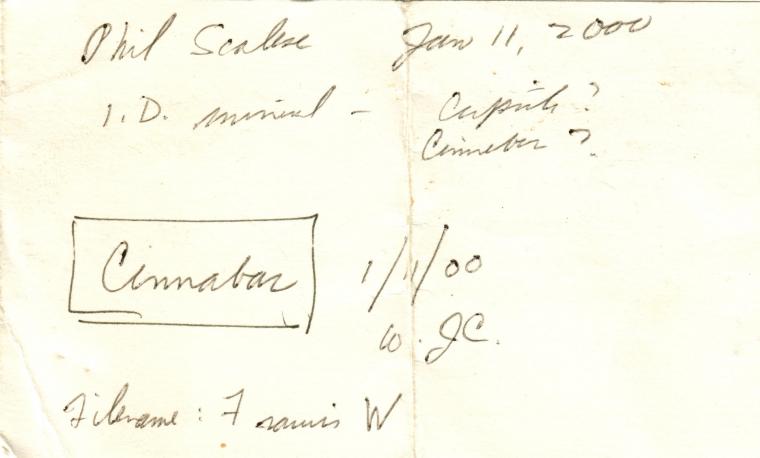 Phil Scalese Jan 11, 2000
I.D. mineral - Cuprite?
Cinnebar?
Cinnabar 1/11/00
w. JC.
Filename: Francis W